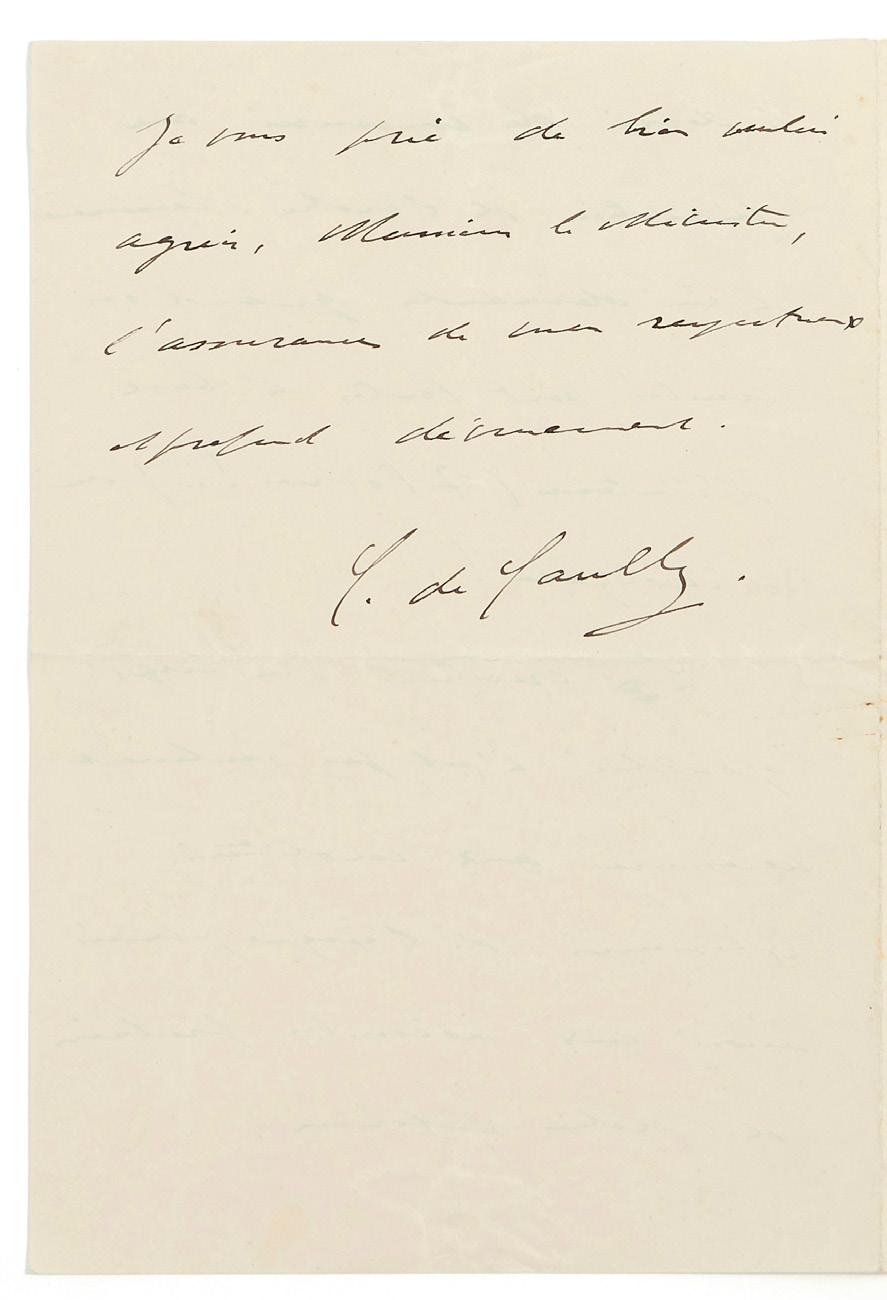 Je vous prie de bien vouloir
agréer, Monsieur le Ministre,
l'assurance de mon respectueux
et profond dévouement.
C. de Gaulle.